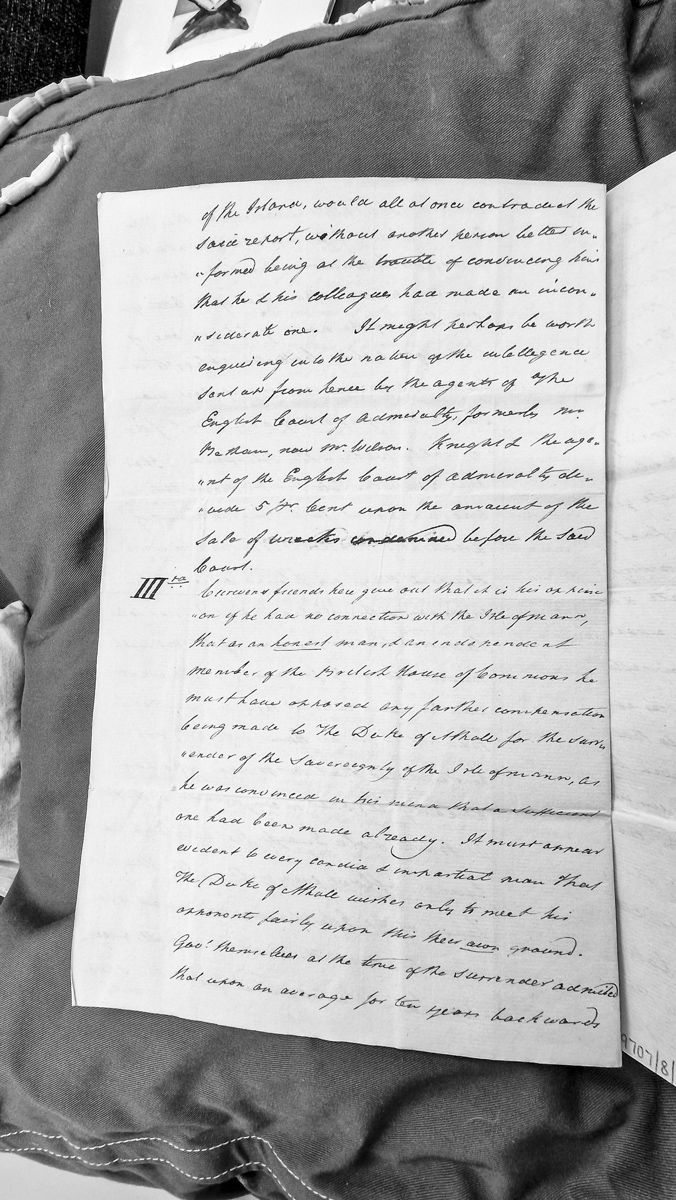 of the Island, would all at once contradict the
said report, without another person better in„
„formed being at the trouble of convincing him
that he & his colleagues had made an incon„
„siderate one. It might perhaps be worth
enquiring into the nature of the intellegence
sent as from hence by the agents of the
English Court of Admiralty, formerly Mr.
Betham, now Mr. Wilson. Knight & the age„
„nt of the English Court of Admiralty di„
„vide 5 Pr. Cent upon the amount of the
Sale of wrecks condemned before the said
Court.
III
Curwens friends here give out that it is his opinion
„on if he had no connection with the Isle of Mann,
that as an honest man, & an independent
member of the British House of Commons he
must have opposed any farther compensation
being made to The Duke of Atholl for the surr„
„ender of the Sovereignty of the Isle of Mann, as
he was convinced in his mind that a sufficient
one had been made already. It must appear
evident to every candid & impartial man that
The Duke of Atholl wishes only to meet his
opponents fairly upon this their own ground.
Govt. themselves at the time of the surrender admitted
that upon an average for ten years backwards
9707/8/